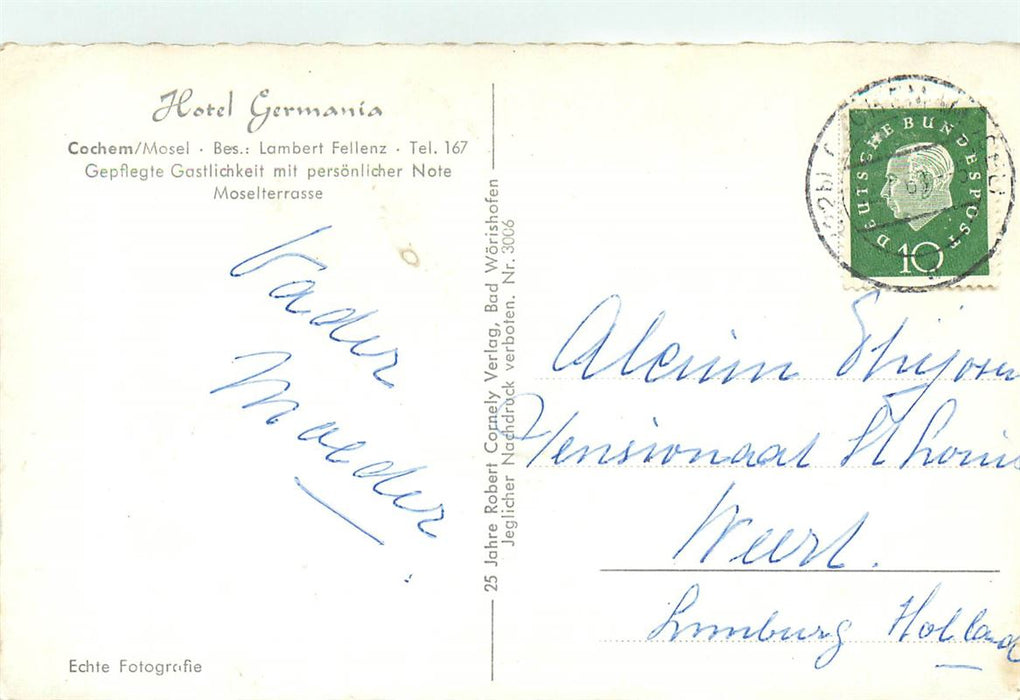 Hotel Germania
Cochem/Mosel · Bes.: Lambert Fellenz · Tel. 167
Gepflegte Gastlichkeit mit persönlicher Note
Moselterrasse
Vader
Moeder.
Echte Fotografie
25 Jahre Robert Cornely Verlag, Bad Wörishofen
Jeglicher Nachdruck verboten. Nr. 3006
DEUTSCHE BUNDESPOST
10
Pensionaat St Louis
Weert.
Limburg Holland